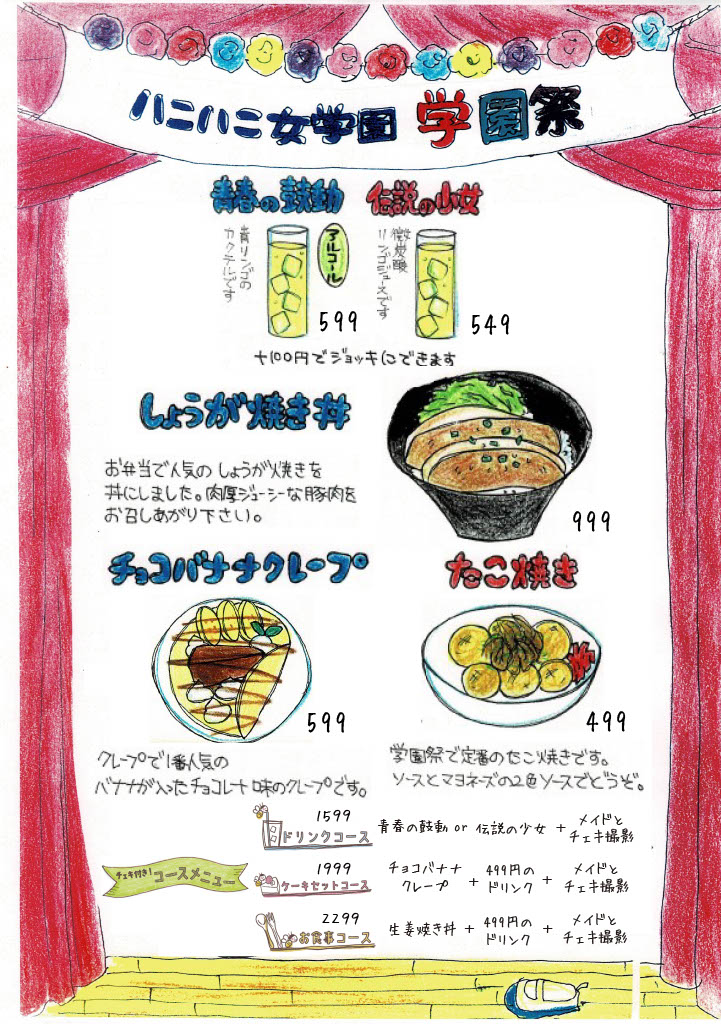 ハニハニ女学園 学園祭
青春の鼓動
伝説の少女
青リンゴの
カクテルです
アルコール
599
微炭酸
リンゴジュースです
549
+100円でジョッキにできます
しょうが焼き丼
お弁当で人気のしょうが焼きを
丼にしました。肉厚ジューシーな豚肉を
お召しあがり下さい。
999
チョコバナナクレープ
599
クレープで1番人気の
バナナが入ったチョコレート味のクレープです。
たこ焼き
499
学園祭で定番のたこ焼きです。
ソースとマヨネーズの2色ソースでどうぞ。
チェキ付き!コースメニュー
1599
ドリンクコース
青春の鼓動 or 伝説の少女 + メイドと
チェキ撮影
1999
ケーキセットコース
チョコバナナ
クレープ
+
499円の
ドリンク
+
メイドと
チェキ撮影
2299
お食事コース
生姜焼き丼 +
499円の
ドリンク
+
メイドと
チェキ撮影